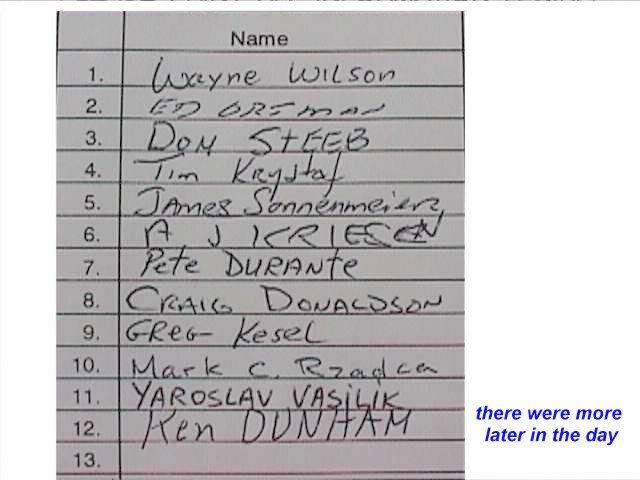 Name
1. Wayne Wilson
2. ED
3. DON STEEB
4. Tim Krystaf
5. JAMES Sonnenmeier
6. A J KRIESEN
7. Pete DURANTE
8. CRAIG DONALDSON
9. GREG Kesel
10. Mark C. Rzadca
11. YAROSLAV VASILIK
12. Ken DUNHAM
13.
there were more
later in the day